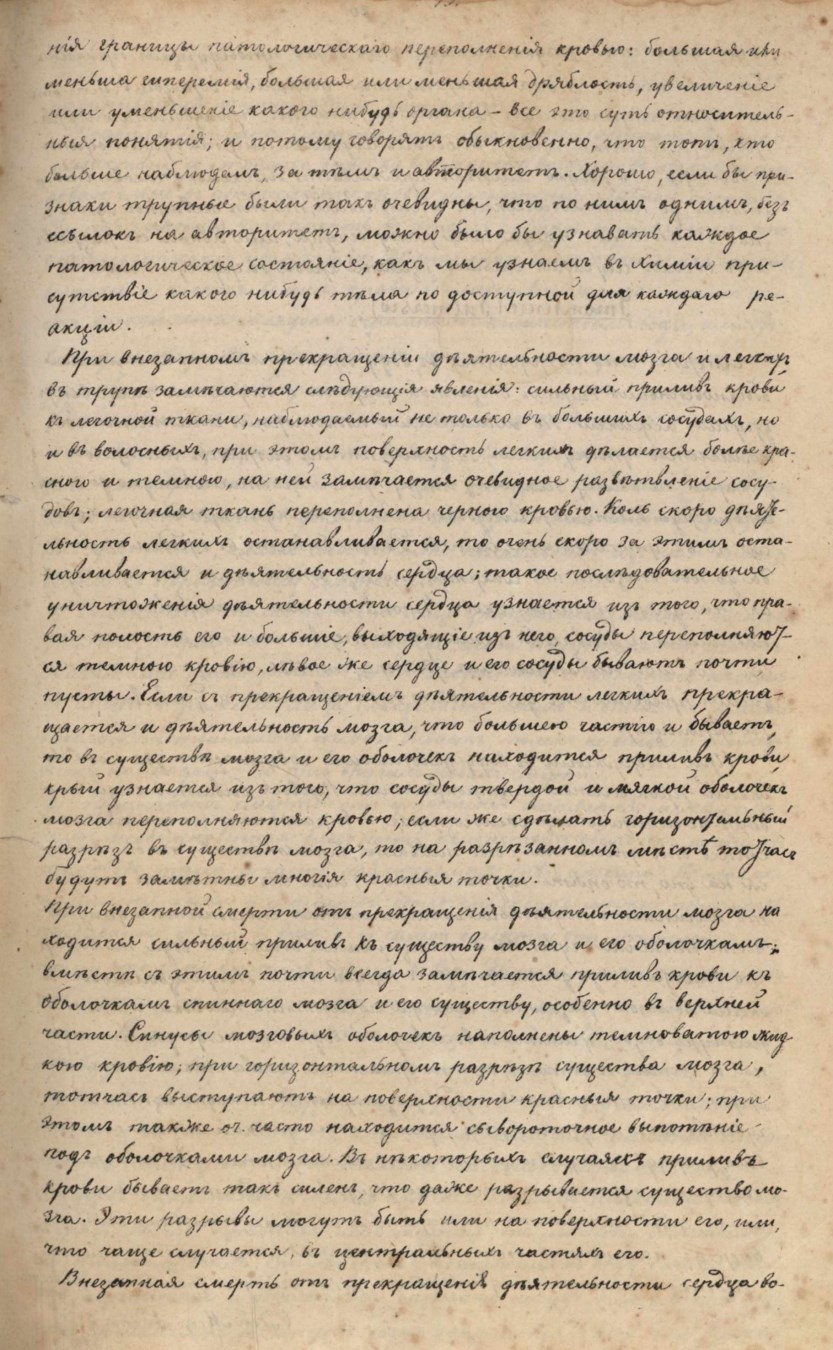 нія границы патологическаго переполненія кровью: большая или
меньша гиперемія, большая или меньшая дряблость, увеличеніе
или уменьшеніе какого нибудь органа – все это суть относитель-
ныя понятія; и потому говорятъ обыкновенно, что тотъ, кто
больше наблюдалъ, за тѣмъ и авторитетъ. Хорошо, если бы при-
знаки трупные были такъ очевидны, что по нимъ однимъ, безъ
ссылокъ на авторитетъ, можно было бы узнавать каждое
патологическое состояніе, какъ мы узнаемъ въ химіи при-
сутствіе какого нибудь тѣла по доступной для каждаго ре-
акціи.
При внезапномъ прекращеніи дѣятельности мозга и легкихъ
въ трупѣ замѣчаются слѣдующія явленія: сильный приливъ крови
къ легочной ткани, наблюдаемый не только въ большихъ сосудахъ, но
и въ волосныхъ, при этомъ поверхность легкихъ дѣлается болѣе кра-
сною и темною, на ней замѣчается очевидное развѣтвленіе сосу-
довъ; легочная ткань переполнена черною кровью. Коль скоро дѣяте-
льность легкихъ останавливается, то очень скоро за этимъ оста-
навливается и дѣятельность сердца; такое послѣдовательное
уничтоженія дѣятельности сердца узнается изъ того, что пра-
вая полость его и большіе, выходящіе изъ него, сосуды переполняют-
ся темною кровію, лѣвое же сердце и его сосуды бываютъ почти
пусты. Если съ прекращеніемъ дѣятельности легкихъ прекра-
щается и дѣятельность мозга, что большею частію и бываетъ,
то въ существѣ мозга и его оболочекъ находится приливъ крови,
крый узнается изъ того, что сосуды твердой и мягкой оболочекъ
мозга переполняются кровью; если же сдѣлать горизонтальный
разрѣзъ въ существѣ мозга, то на разрѣзанномъ мѣстѣ тотчасъ
будутъ замѣтны многія красныя точки.
При внезапной смерти отъ прекращенія дѣятельности мозга на
ходится сильный приливъ къ существу мозга и его оболочкамъ;
вмѣстѣ съ этимъ почти всегда замѣчается приливъ крови къ
оболочкамъ спиннаго мозга и его существу, особенно въ верхней
части. Синусы мозговыхъ оболочекъ наполнены темноватою жид-
кою кровію; при горизонтальномъ разрѣзѣ существа мозга,
тотчасъ выступаютъ на поверхности красныя точки; при
этомъ также оч. часто находится сывороточное выпотѣніе
подъ оболочками мозга. Въ нѣкоторыхъ случаяхъ приливъ
крови бываетъ такъ силенъ, что даже разрывается существо мо-
зга. Эти разрывы могутъ быть или на поверхности его, или,
что чаще случается, въ центральныхъ частяхъ его.
Внезапная смерть отъ прекращенія дѣятельности сердца во-